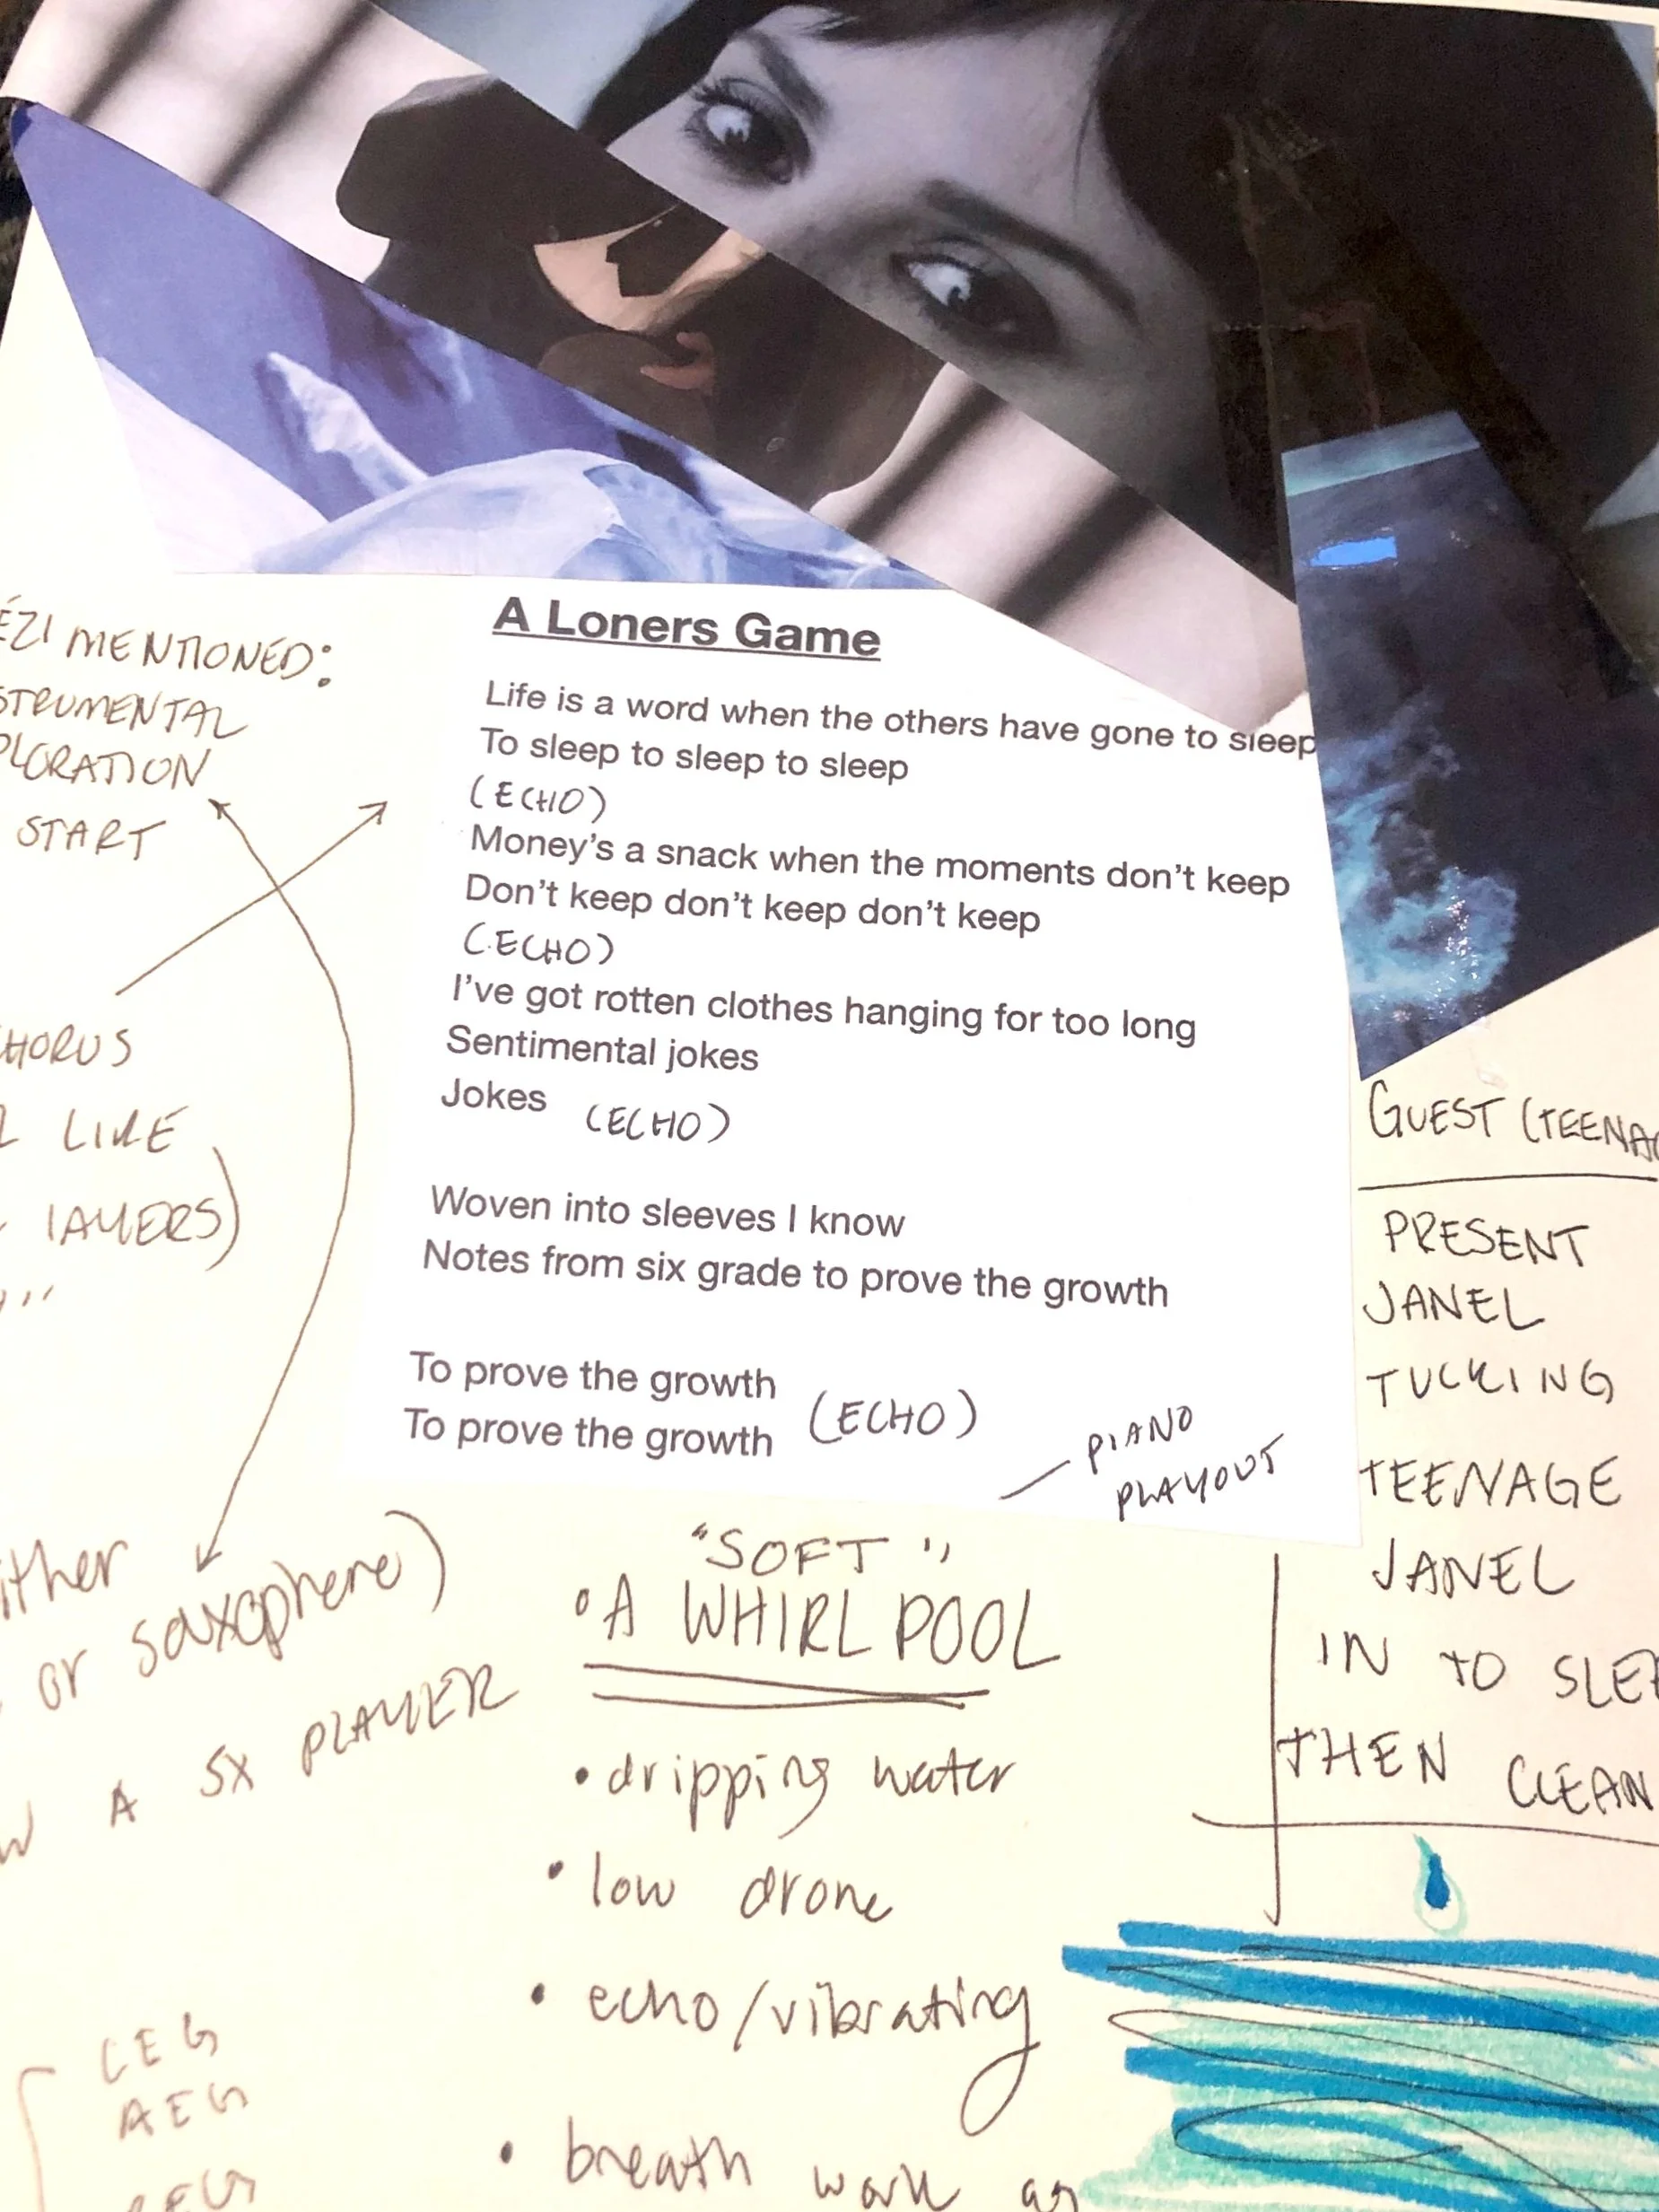 A Loners Game
Life is a word when the others have gone to sleep
To sleep to sleep to sleep
(ECHO)
Money's a snack when the moments don't keep
Don't keep don't keep don't keep
(ECHO)
I've got rotten clothes hanging for too long
Sentimental jokes
Jokes (ECHO)
Woven into sleeves I know
Notes from six grade to prove the growth
To prove the growth
To prove the growth (ECHO)
PIANO
PLAYOUT
MENTIONED:
START
LIKE
LAYERS)
or saxophone)
A SX PLAYER
CEG
AEG
"SOFT"
A WHIRLPOOL
• dripping water
• low drone
• echo/vibrating
• breath work as
GUEST
PRESENT
JANEL
TUCKING
TEENAGE
JANEL
IN TO
THEN CLEAN